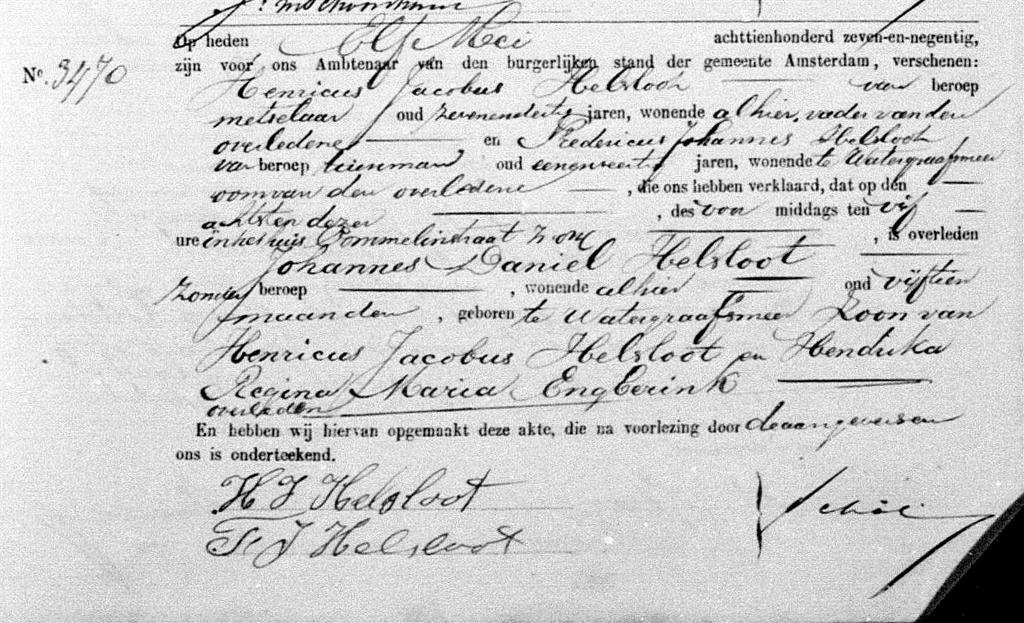 Op heden Elf Mei achttienhonderd zeven-en-negentig,
N°. 3470
zijn voor ons Ambtenaar van den burgerlijken stand der gemeente Amsterdam, verschenen:
Henricus Jacobus Helsloot van beroep
metselaar oud zevenendertig jaren, wonende alhier, vader van den
overledene en Fredericus Johannes Helsloot
van beroep tuinman oud eenenveertig jaren, wonende te Watergraafsmeer
oom van den overledene , die ons hebben verklaard, dat op den
achtsten dezer , des voor middags ten vijf
ure in het huis Commelinstraat , is overleden
Johannes Daniel Helsloot
zonder beroep , wonende alhier oud vijftien
maanden , geboren te Watergraafsmeer Zoon van
Henricus Jacobus Helsloot en Hendrika
Regina Maria Engberink
overleden
En hebben wij hiervan opgemaakt deze akte, die na voorlezing door de aangevers en
ons is onderteekend.
H J Helsloot
F J Helsloot